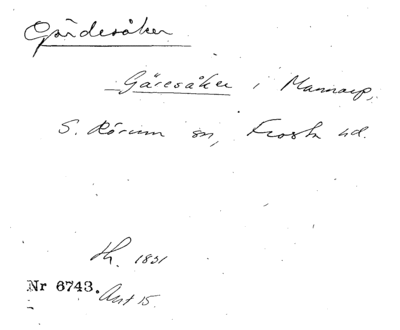 Gärdesåker
Gäresåker i Mannarp,
S. Rörum sn, Frosta hd.
th. 1831
Nr 6743. Akt 15.